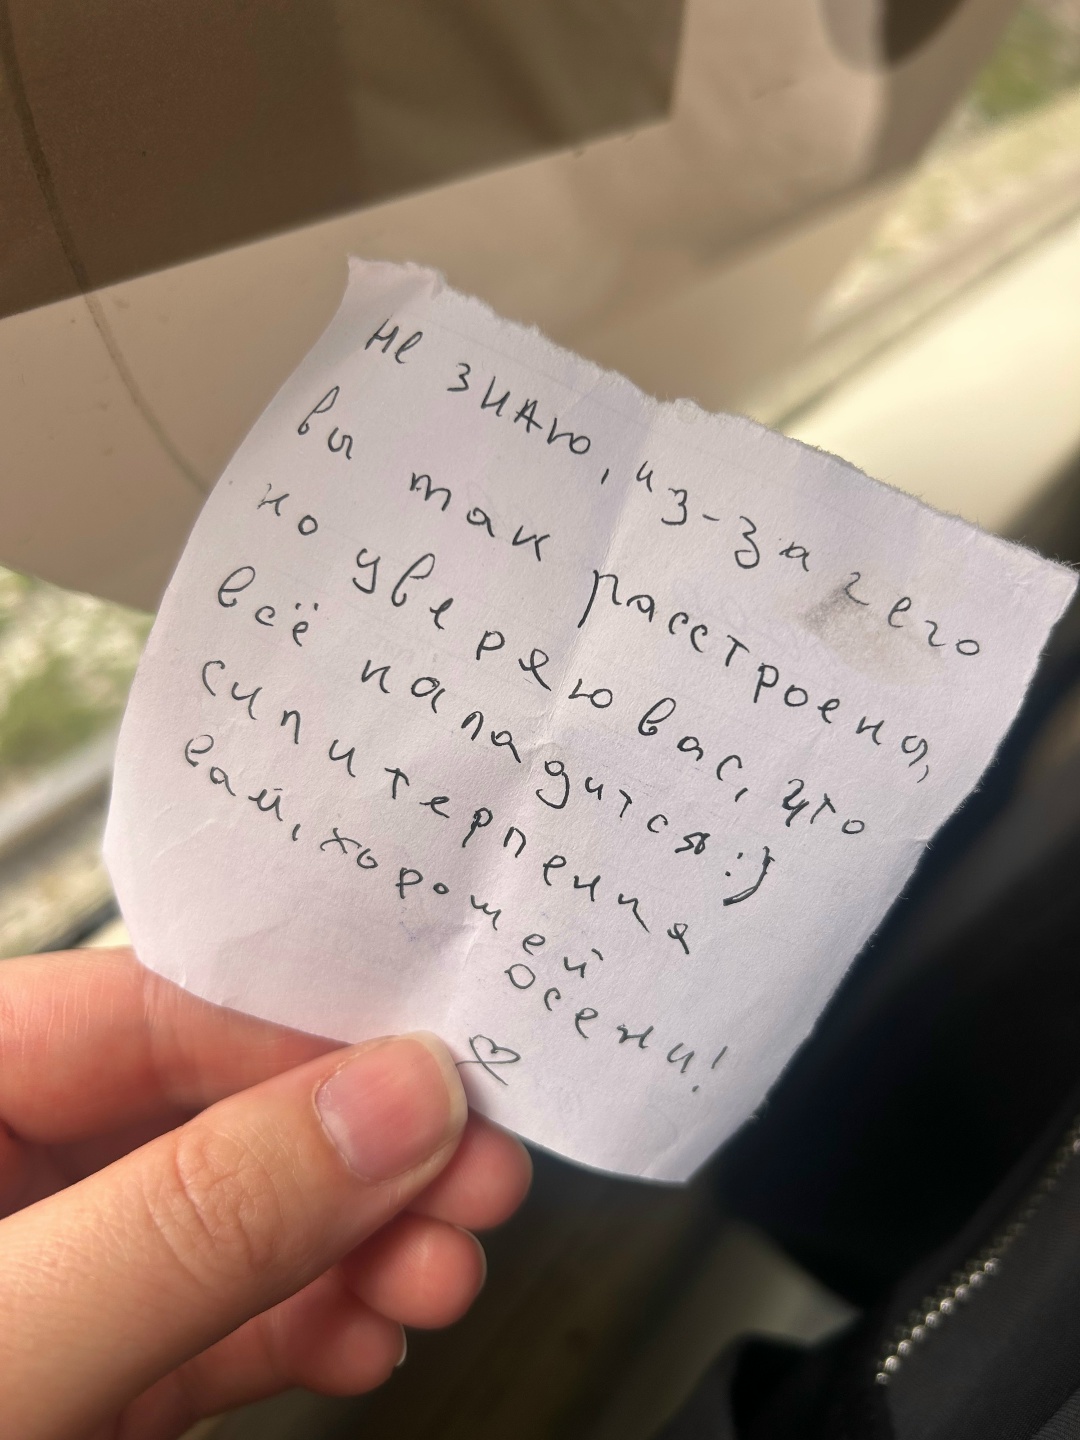 не знаю, из-за чего
вы так расстроена,
но уверяю вас, что
всё наладится :)
сил и терпения
вам, хорошей
осени!